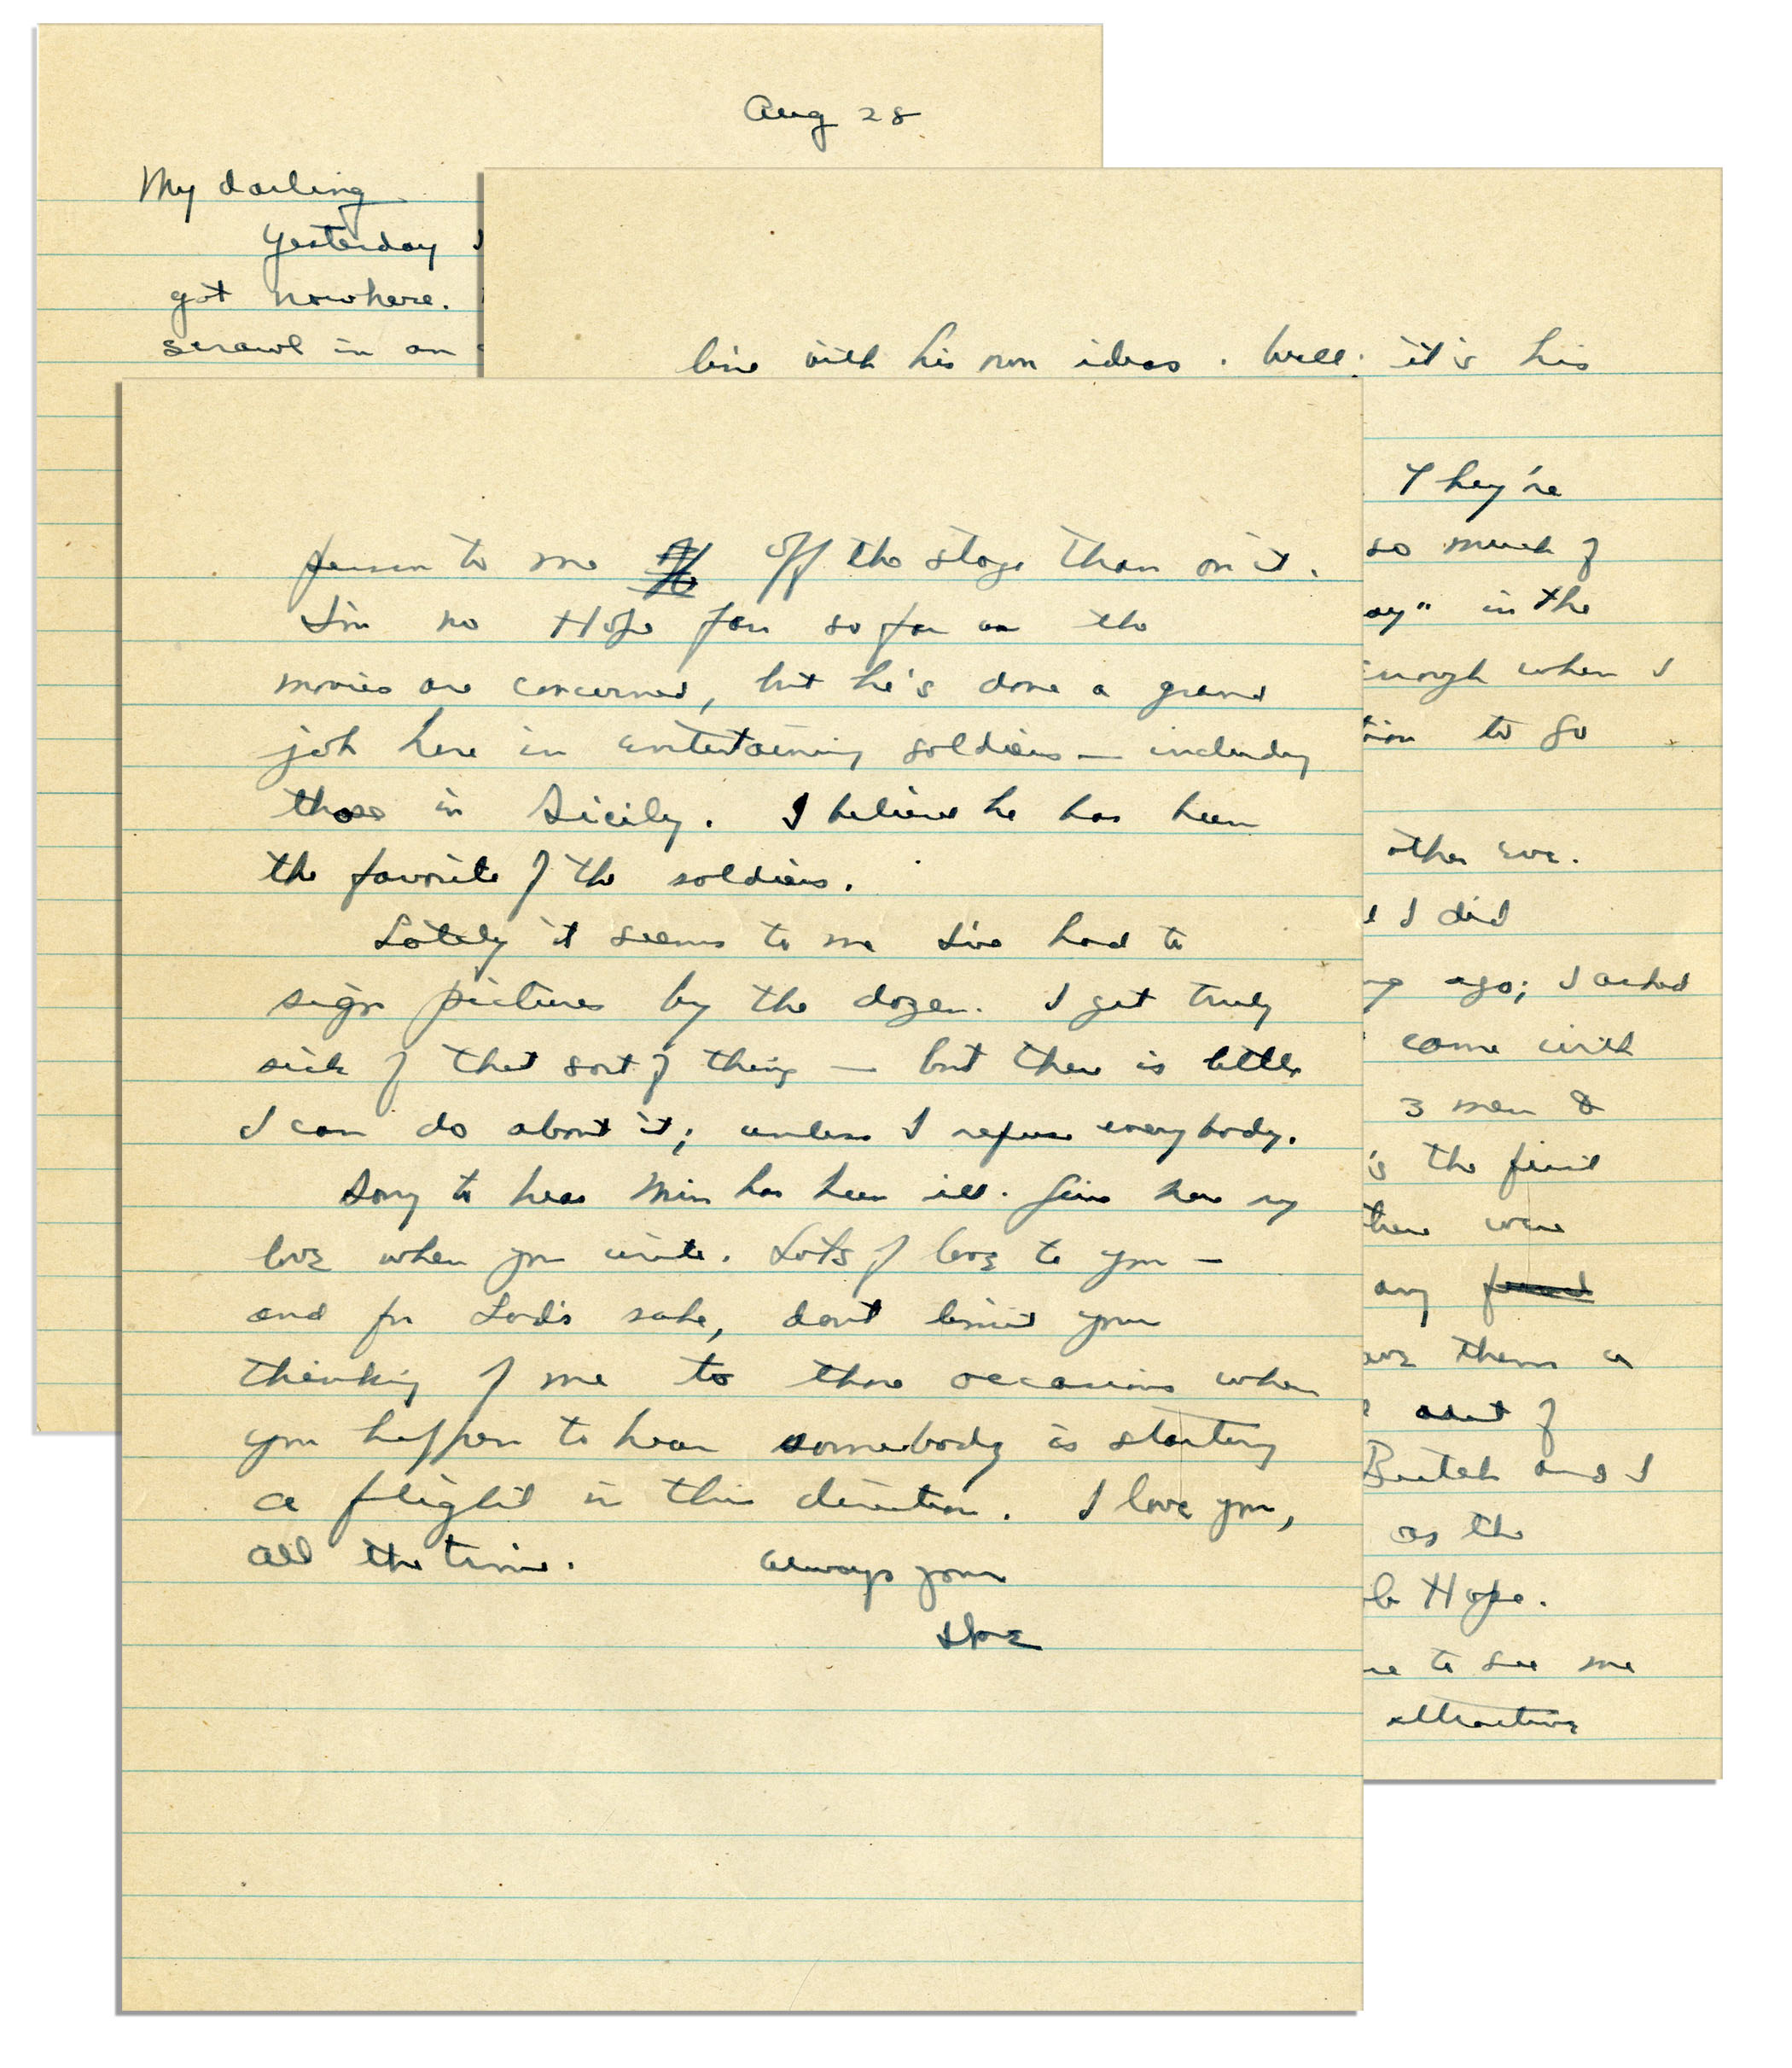 Aug 28
My darling
Yesterday I
got nowhere.
scrawl in an
line with his own ideas. Well: it's his
They're
so much of
ay" in the
enough when I
tion to go
other eve.
I did
ng ago; I asked
come with
3 men &
is the first
there were
any
ave them a
out of
British and I
as the
ob Hope.
me to see me
attractive
person to me off the stage than on it.
I'm no Hope fan so far as the
movies are concerned, but he's done a grand
job here in entertaining soldiers — including
those in Sicily. I believe he has been
the favorite of the soldiers.
Lately it seems to me I've had to
sign pictures by the dozen. I get truly
sick of that sort of thing — but there is little
I can do about it; unless I refuse everybody.
Sorry to hear Min has been ill. Give her my
love when you write. Lots of love to you —
and for Lord's sake, don't limit your
thinking of me to those occasions when
you happen to hear somebody is starting
a flight in this direction. I love you,
all the time. Always your
Ike